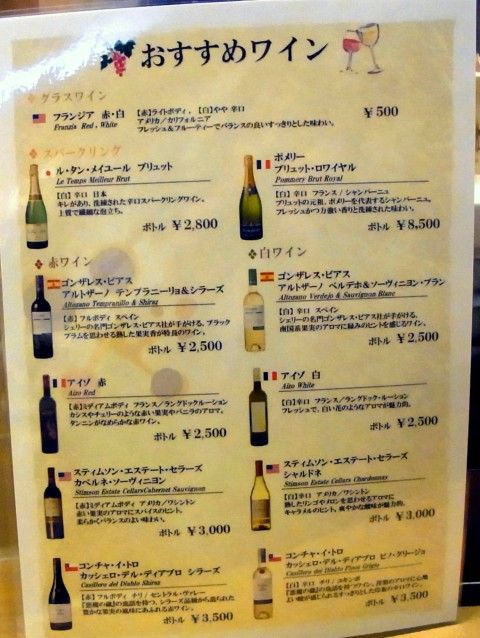 おすすめワイン
グラスワイン
フランジア 赤・白
Franzia Red , White
【赤】ライトボディ , 【白】やや 辛口
アメリカ/カリフォルニア
フレッシュ&フルーティーでバランスの良いすっきりとした味わい。
￥500
スパークリング
ル・タン・メイユール ブリュット
Le Temps Meilleur Brut
【白】辛口 日本
キレがあり、洗練された辛口スパークリングワイン。
上質で繊細な泡立ち。
ボトル ￥2,800
ポメリー
ブリュット・ロワイヤル
Pommery Brut Royal
【白】辛口 フランス/シャンパーニュ
ブリュットの元祖、ポメリーを代表するシャンパーニュ。
フレッシュかつ力強い香りと洗練された味わい。
ボトル ￥8,500
赤ワイン
ゴンザレス・ビアス
アルトザーノ テンプラニーリョ&シラーズ
Altozano Tempranillo & Shiraz
【赤】フルボディ スペイン
シェリーの名門ゴンザレス・ビアス社が手がける、ブラック
プラムを思わせる熟した果実香が特長のワイン。
ボトル ￥2,500
アイゾ 赤
Aizo Red
【赤】ミディアムボディ フランス/ラングドックルーション
カシスやチェリーのような赤い果実やバニラのアロマ。
タンニンがなめらかな赤ワイン。
ボトル ￥2,500
スティムソン・エステート・セラーズ
カベルネ・ソーヴィニヨン
Stimson Estate CellarsCabernet Sauvignon
【赤】ミディアムボディ アメリカ/ワシントン
赤い果実のアロマにスパイスのヒント。
柔らかくバランスのよい味わい。
ボトル ￥3,000
コンチャ・イ・トロ
カッシェロ・デル・ディアブロ シラーズ
Casillero del Diablo Shiraz
【赤】フルボディ チリ/セントラル・ヴァレー
『悪魔の蔵』の逸話を持つ、シラーズ品種から造られた
豊かな果実の風味にあふれる赤ワイン。
ボトル ￥3,500
白ワイン
ゴンザレス・ビアス
アルトザーノ ベルデホ&ソーヴィニヨン・ブラン
Altozano Verdejo & Sauvignon Blanc
【白】辛口 スペイン
シェリーの名門ゴンザレス・ビアス社が手がける、
南国系果実のアロマに緑みのヒントを感じるワイン。
ボトル ￥2,500
アイゾ 白
Aizo White
【白】辛口 フランス/ラングドック・ルーション
フレッシュで、白い花のようなアロマが魅力的。
ボトル ￥2,500
スティムソン・エステート・セラーズ
シャルドネ
Stimson Estate Cellars Chardonnay
【白】辛口 アメリカ/ワシントン
熟したリンゴやメロンを思わせるアロマに
キャラメルのヒント、爽やかな酸味が魅力的。
ボトル ￥3,000
コンチャ・イ・トロ
カッシェロ・デル・ディアブロ ピノ・グリージョ
Casillero del Diablo Pinot Grigio
【白】辛口 チリ/
『悪魔の蔵』の逸話を持つワイン。
ボトル ￥3,500